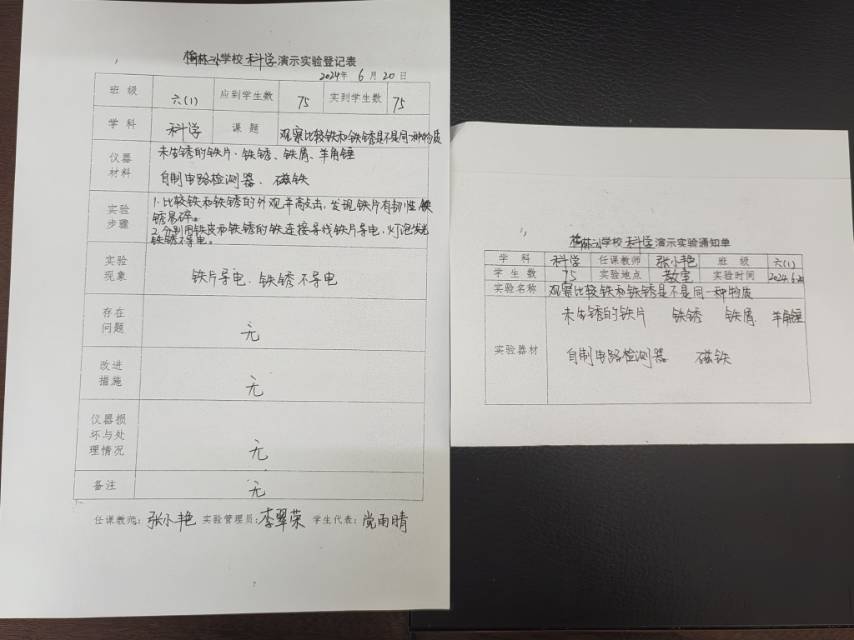 梅林小学校科学演示实验登记表
2024年6月20日
班级 六(1) 应到学生数 75 实到学生数 75
学科 科学 课题 观察比较铁和铁锈是不是同一种物质
仪器材料 未生锈的铁片、铁锈、铁屑、羊角锤
自制电路检测器、磁铁
实验步骤 1.比较铁和铁锈的外观并敲击,发现铁片有韧性铁
锈易碎。
2.分别用铁皮和铁锈的铁连接导线铁片导电,灯泡发光
铁锈不导电。
实验现象 铁片导电、铁锈不导电
存在问题 无
改进措施 无
仪器损坏与处理情况 无
备注 无
任课教师:张小艳 实验管理员:李翠荣 学生代表:党雨晴
梅林小学校科学演示实验通知单
学科 科学 任课教师 张小艳 班级 六(1)
学生数 75 实验地点 教室 实验时间 2024.6.
实验名称 观察比较铁和铁锈是不是同一种物质
实验器材 未生锈的铁片 铁锈 铁屑 羊角锤
自制电路检测器 磁铁